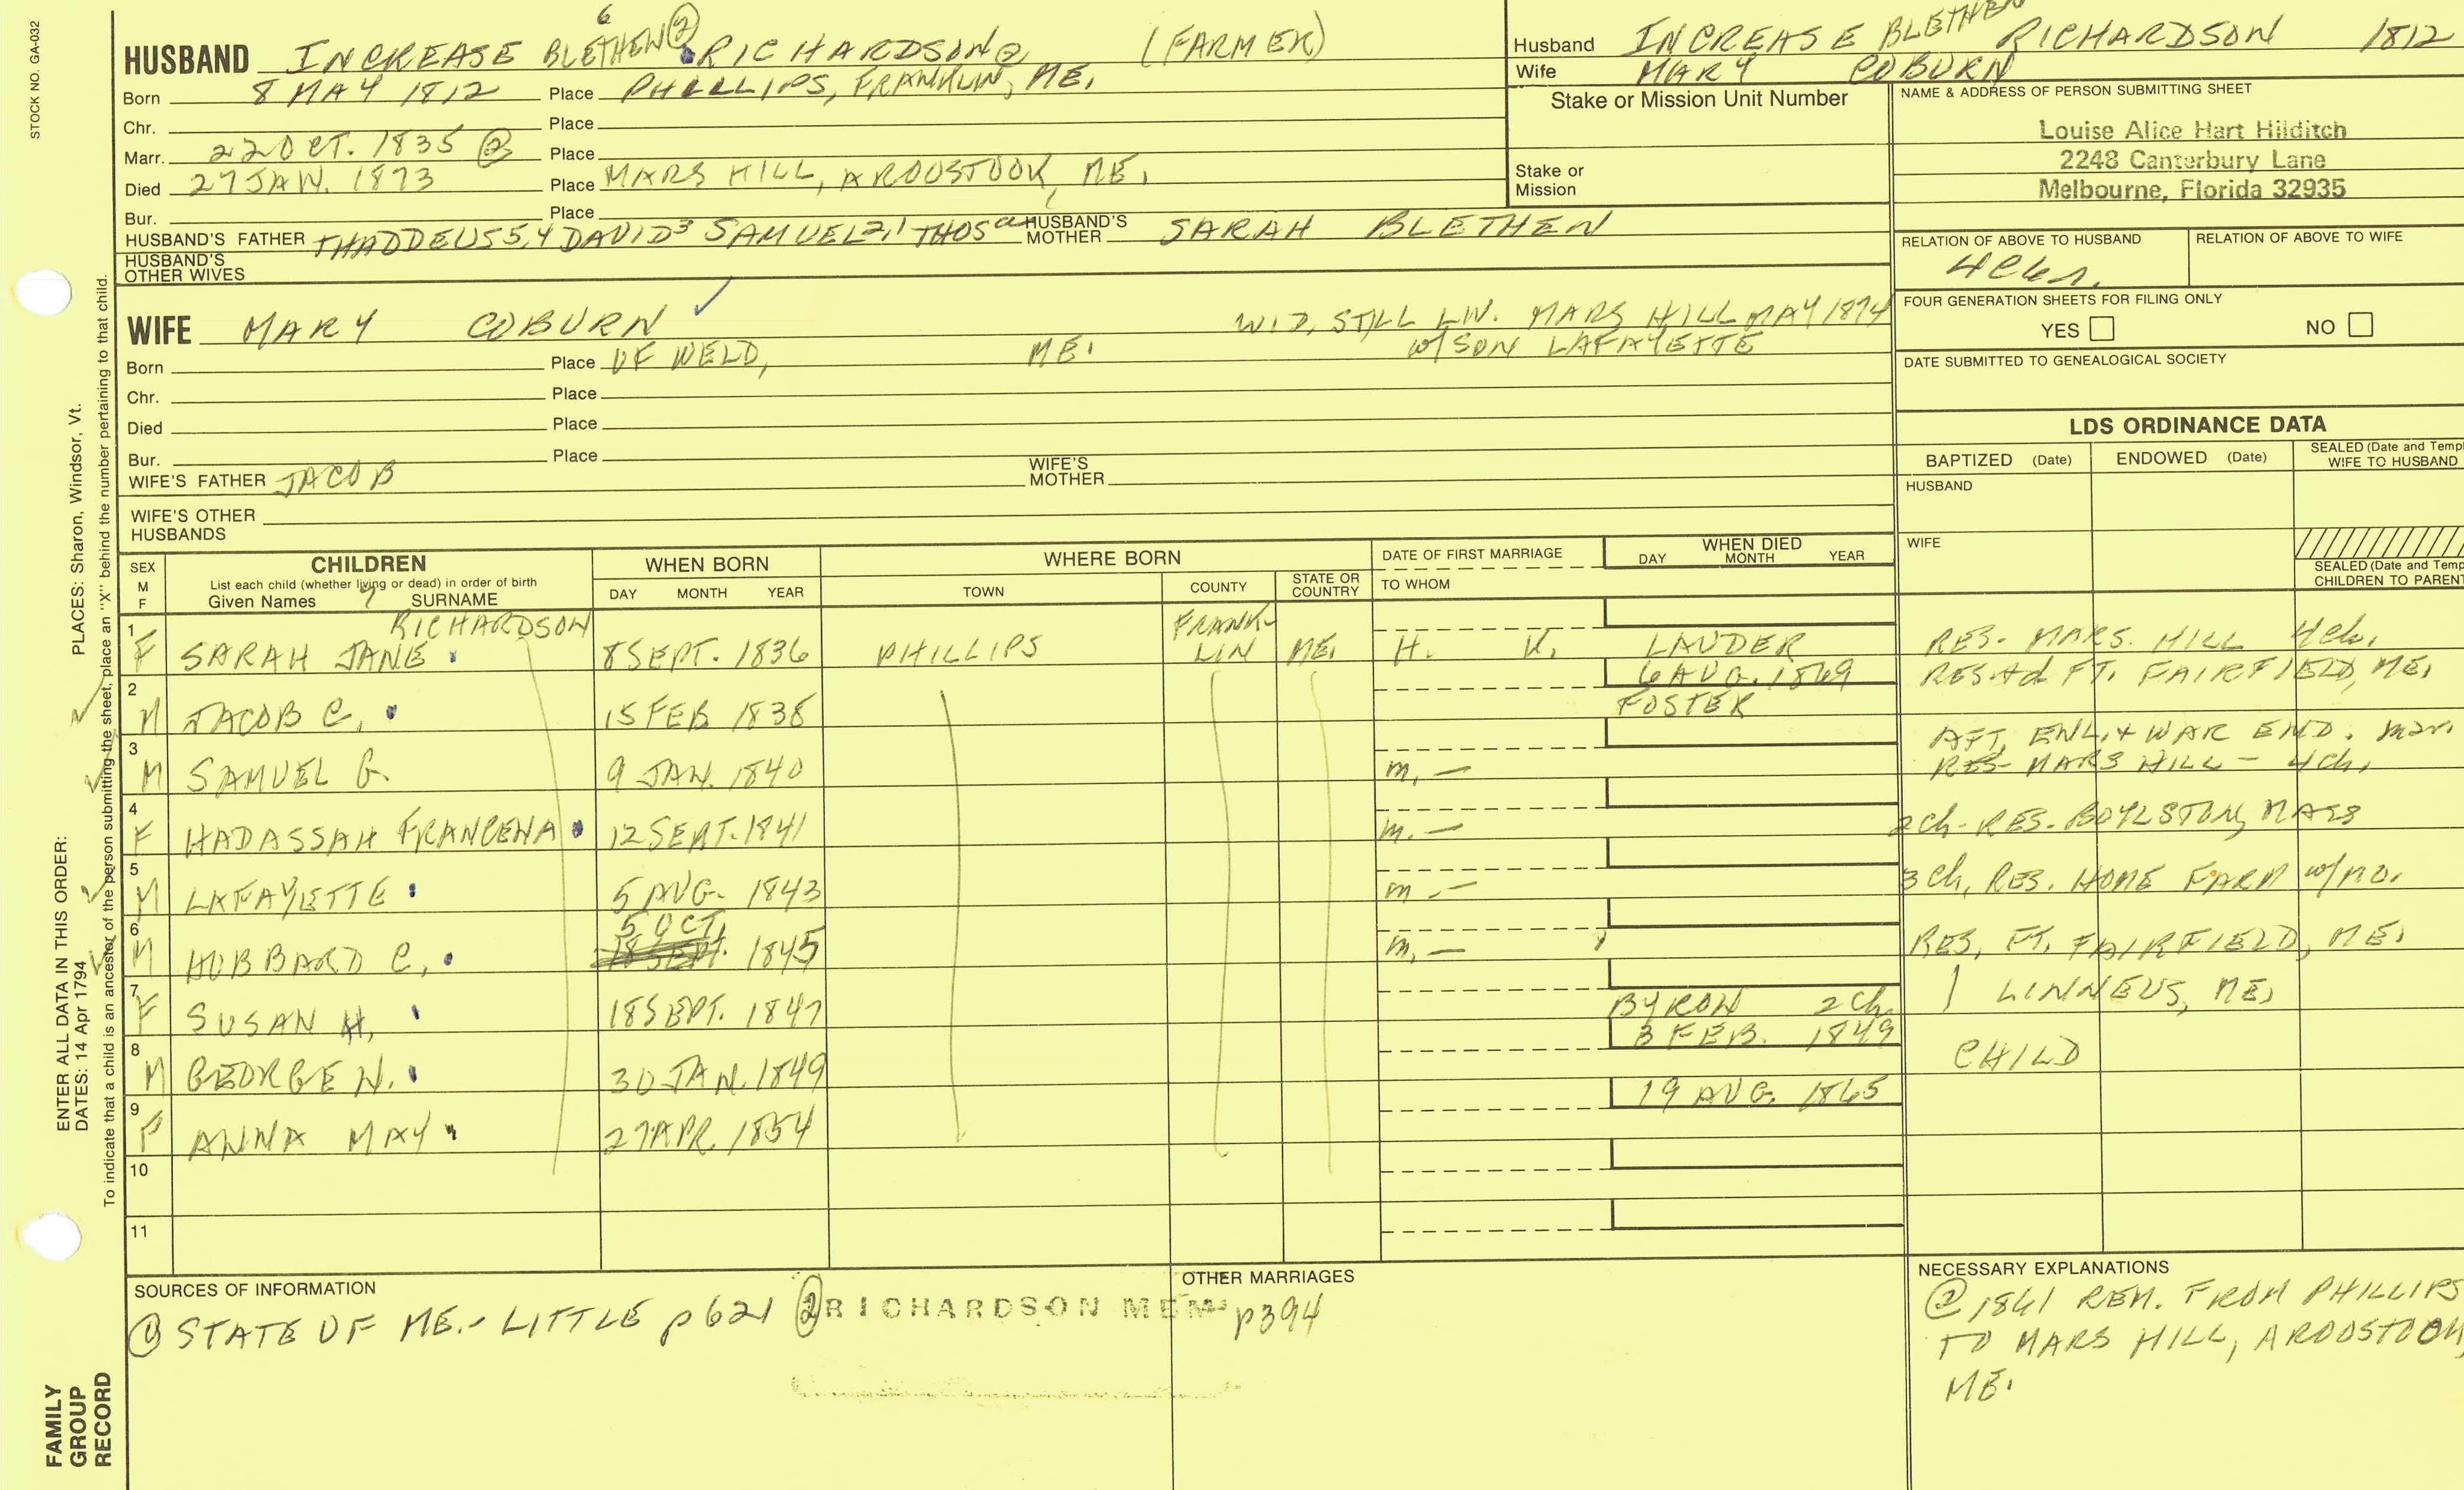 STOCK NO. GA-032
HUSBAND INCREASE BLETHEN ② 6 RICHARDSON ② (FARMER)
Born 8 MAY 1812 Place PHILLIPS, FRANKLIN, ME.
Chr. Place
Marr. 22 OCT. 1835 ② Place
Died 27 JAN. 1873 Place MARS HILL, AROOSTOOK, ME.
Bur. Place
HUSBAND'S FATHER THADDEUS 5,4 DAVID 3 SAMUEL 2,1 THOS a HUSBAND'S MOTHER SARAH BLETHEN
HUSBAND'S OTHER WIVES
WIFE MARY COBURN ✓ WID. STILL LIV. MARS HILL MAY 1874
w/ SON LAFAYETTE
Born Place OF WELD, ME.
Chr. Place
Died Place
Bur. Place
WIFE'S FATHER JACOB WIFE'S MOTHER
WIFE'S OTHER HUSBANDS
Husband INCREASE BLETHEN RICHARDSON 1812
Wife MARY COBURN
Stake or Mission Unit Number
Stake or Mission
NAME & ADDRESS OF PERSON SUBMITTING SHEET
Louise Alice Hart Hilditch
2248 Canterbury Lane
Melbourne, Florida 32935
RELATION OF ABOVE TO HUSBAND RELATION OF ABOVE TO WIFE
FOUR GENERATION SHEETS FOR FILING ONLY
YES NO
DATE SUBMITTED TO GENEALOGICAL SOCIETY
LDS ORDINANCE DATA
BAPTIZED (Date) ENDOWED (Date) SEALED (Date and Temp
WIFE TO HUSBAND
HUSBAND
WIFE
SEALED (Date and Temp
CHILDREN TO PARENT
SEX M F
CHILDREN
List each child (whether living or dead) in order of birth
Given Names 7 SURNAME
WHEN BORN
DAY MONTH YEAR
WHERE BORN
TOWN COUNTY STATE OR COUNTRY
DATE OF FIRST MARRIAGE
TO WHOM
WHEN DIED
DAY MONTH YEAR
RICHARDSON
1 F SARAH JANE 8 SEPT. 1836 PHILLIPS FRANK-LIN ME. H. K. LAUDER RES- MARS. HILL 4ch.
2 M JACOB C. 15 FEB 1838 6 AUG. 1869 FOSTER RES. FT. FAIRFIELD, ME.
3 M SAMUEL G. 9 JAN. 1840 m. — AFT. ENL. + WAR END. mar.
RES- MARS HILL - 4ch.
4 F HADASSAH FRANCENA 12 SEPT. 1841 m. — 2ch- RES. BOYLSTON, MASS
5 M LAFAYETTE 5 AUG. 1843 m — 3 Ch, RES. HOME FARM w/mo.
6 M HUBBARD C. 5 OCT. 18 SEPT. 1845 m. — RES, FT. FAIRFIELD, ME.
7 F SUSAN H. 18 SEPT. 1847 BYRON 2 Ch. LINNEUS, ME.
8 M GEORGE N. 30 JAN. 1849 3 FEB. 1849 CHILD
9 F ANNA MAY 27 APR. 1854 19 AUG. 1865
10
11
SOURCES OF INFORMATION
① STATE OF ME. - LITTLE p 621 ② RICHARDSON MEM p394
OTHER MARRIAGES
NECESSARY EXPLANATIONS
② 1861 REM. FROM PHILLIPS
TO MARS HILL, AROOSTOOK,
ME.
ENTER ALL DATA IN THIS ORDER:
DATES: 14 Apr 1794 PLACES: Sharon, Windsor, Vt.
To indicate that a child is an ancestor of the person submitting the sheet, place an "X" behind the number pertaining to that child.
FAMILY
GROUP
RECORD